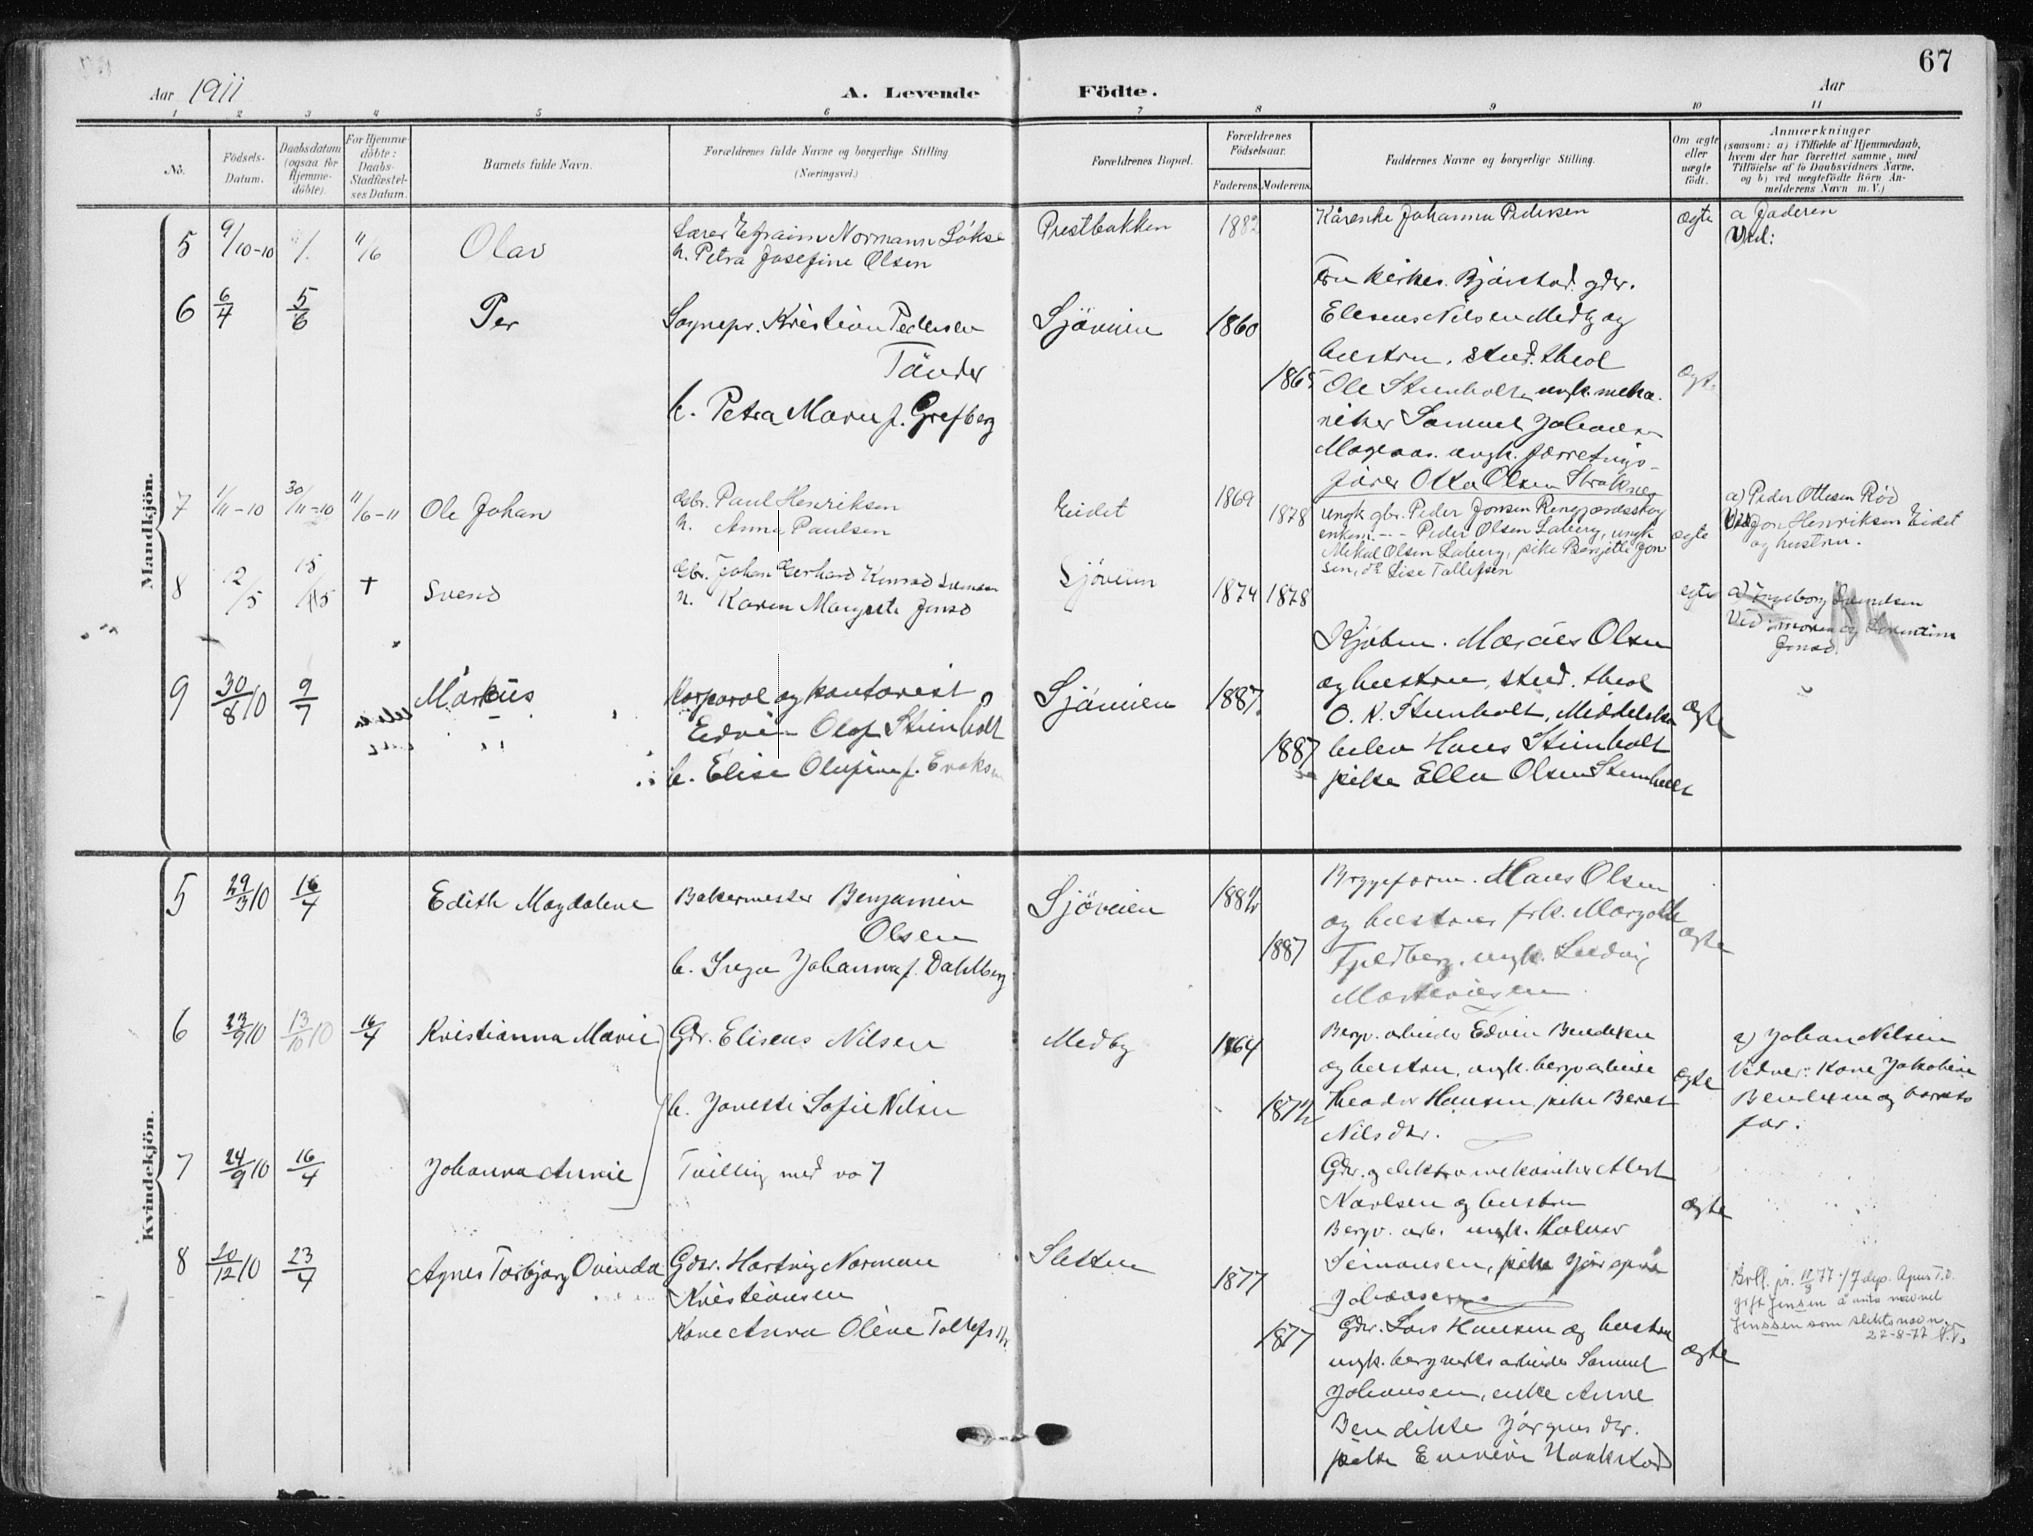 67
Aar 1911
A. Levende Födte.
Aar
1 2 3 4 5 6 7 8 9 10 11
No.
Födsels-
Datum.
Daabsdatum
(ogsaa for
Hjemme-
döbte).
For Hjemme-
döbte:
Daabs-
Stadfæstel-
ses Datum.
Barnets fulde Navn.
Forældrenes fulde Navne og borgerlige Stilling
(Næringsvei.)
Forældrenes Bopæl.
Forældrenes
Födselsaar.
Faderens. Moderens.
Faddernes Navne og borgerlige Stilling.
Om ægte
eller
uægte
födt.
Anmærkninger
(saasom: a) i Tilfælde af Hjemmedaab,
hvem der har forrettet samme, med
Tilföielse af to Daabsvidners Navne,
og b) ved uægtefödte Börn An-
melderens Navn m. V.)
Mandkjön.
5 9/10-10 11/6 Olav
Lærer Efraim Normann Løkse
h. Petra Josefine Olsen
Prestbakken
1882
Kårenke Johanna Pedersen
ægte
a Faderen
6 6/4 5/6 Per
Sognepr. Kristian Pedersen
Tånder
h. Petra Marie f. Grefberg
Sjöveien
1860
1865
Fru Kirkes. Bjørstad. gdr.
Eliseus Nilsen Medby og
hustru, stud. theol
Ole Steenholt, ungk. meka
niker Samuel Johans
ungk. forretnings-
fører Otto Olsen
ægte
7 1/11-10 30/11-10 11/6-11 Ole Johan
Gbr. Paul Henriksen
h. Anna Paulsen
Eidet
1869
1878
ungk gbr. Peder Jonsen
Peder Olsen Laberg, ungk
Mikal Olsen Laberg, pike Bergitte Jon
sen, do Lise Tollefsen
ægte
a) Peder Ottesen Rød
Jon Henriksen Eidet
og hustru.
8 12/5 15/5 + Svend
Gbr. Johan Gerhard Konrad
h. Karen Margrete
Sjøveien
1874 1878
egte
a) Ingeborg Svendsen
Vid:
9 30/8 10 9/7 Markus
Korporal og kontorist
Edvin Olaf Steinholt
h. Elise Olufine f.
Sjöveien
1887
1887
Kjøbm. Marius Olsen
og hustru, stud. theol
O. K. Steenholt, Middelsko
lelev Hans Steinholt
pike Ella Olsen Steinholt
ægte
Kvindekjön.
5 29/3 10 16/4 Edith Magdalene
Bakermester Benjamin
Olsen
h. Inga Johanna f. Dahlberg
Sjöveien
1884
1887
Bryggeform. Hans Olsen
og hustru, frk. Margothe
Fjeldberg, ungk. Ludvig
ægte
6 23/9 10 13/10 10 16/4 Kristianna Marie
Gdr. Eliseus Nilsen
h. Janette Sofie Nilsen
Medby
1864
1874
Bergv. arbeider Edvin Bendiksen
og hustru, ungk. bergv arbeide
Theodor Hansen, pike Beret
Nilsdtr.
ægte
a) Johan Nilsen
Vidner: Kone Jakobine
Bendiksen og barnets
far.
7 24/9 10 16/4 Johanna Annie
Tvilling med no 7
Gdr. og elektromekaniker Albert
Karlsen og hustru
Bergv. arb. ungk. Halvor
Simonsen, pike Jørgine
Johansen
ægte
8 20/12 10 23/4 Agnes Torbjørg Ovinda
Gdr. Hartvig Norman
Kristiansen
Kone Anna Oline Tollefsdtr.
Sletten
1877
1877
Gdr. Lars Hansen og hustru
ungk. bergverksarbeider Samuel
Johansen, enke Anne
Bendikte Jørgensdtr.
pike
ægte
Bekl. jr. 18/8 77 . Agnes T.O.
gift Jensen å anta navnet
Jenssen som slektsnavn.
22-8-77